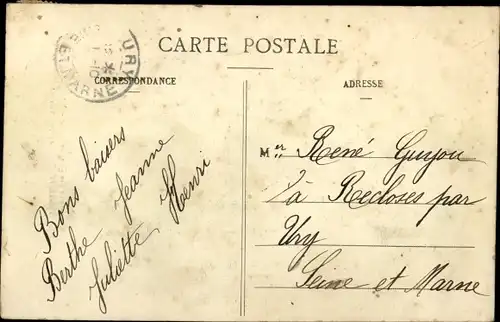 CARTE POSTALE
CORRESPONDANCE
ADRESSE
URY
ET-MARNE
Bons baisers
Berthe Jeanne
Juliette Henri
Mer René Guyou
à Recloses par
Ury
Seine et Marne